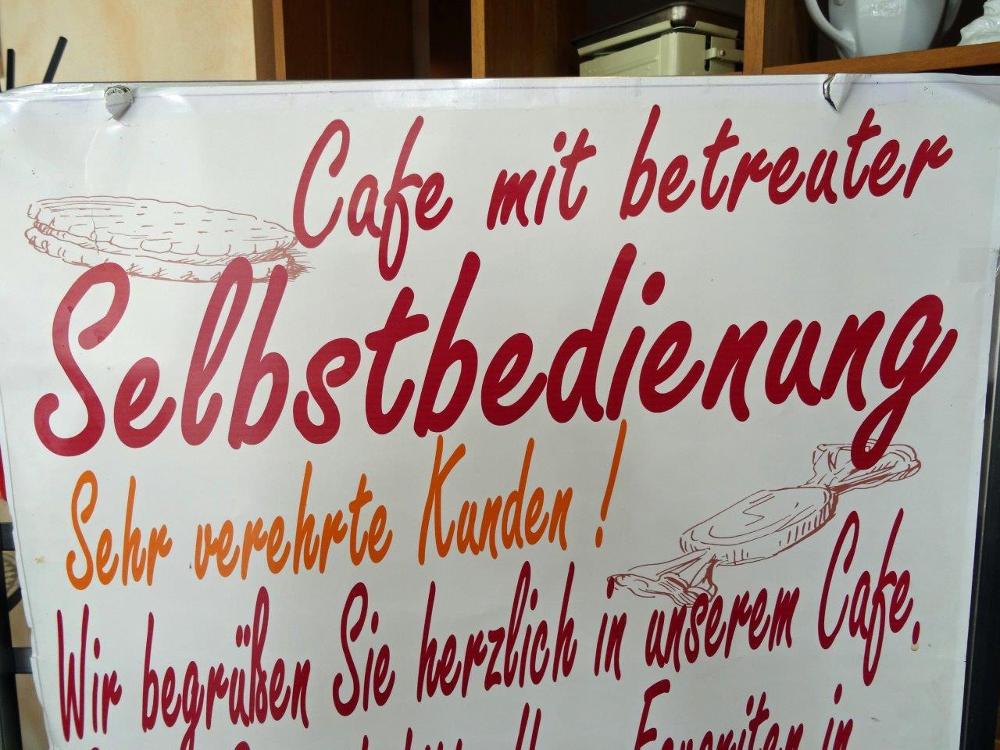 Cafe mit betreuter
Selbstbedienung
Sehr verehrte Kunden !
Wir begrüßen Sie herzlich in unserem Cafe.
Favoriten in